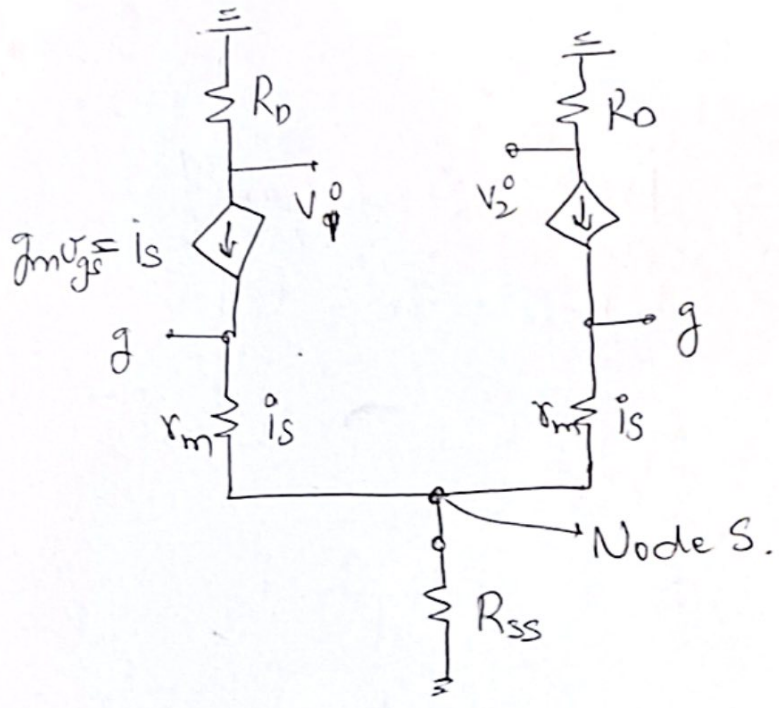 R_D
R_D
V_1^o
V_2^o
g_m v_gs = i_s
g
g
r_m
i_s
r_m
i_s
Node S.
R_SS